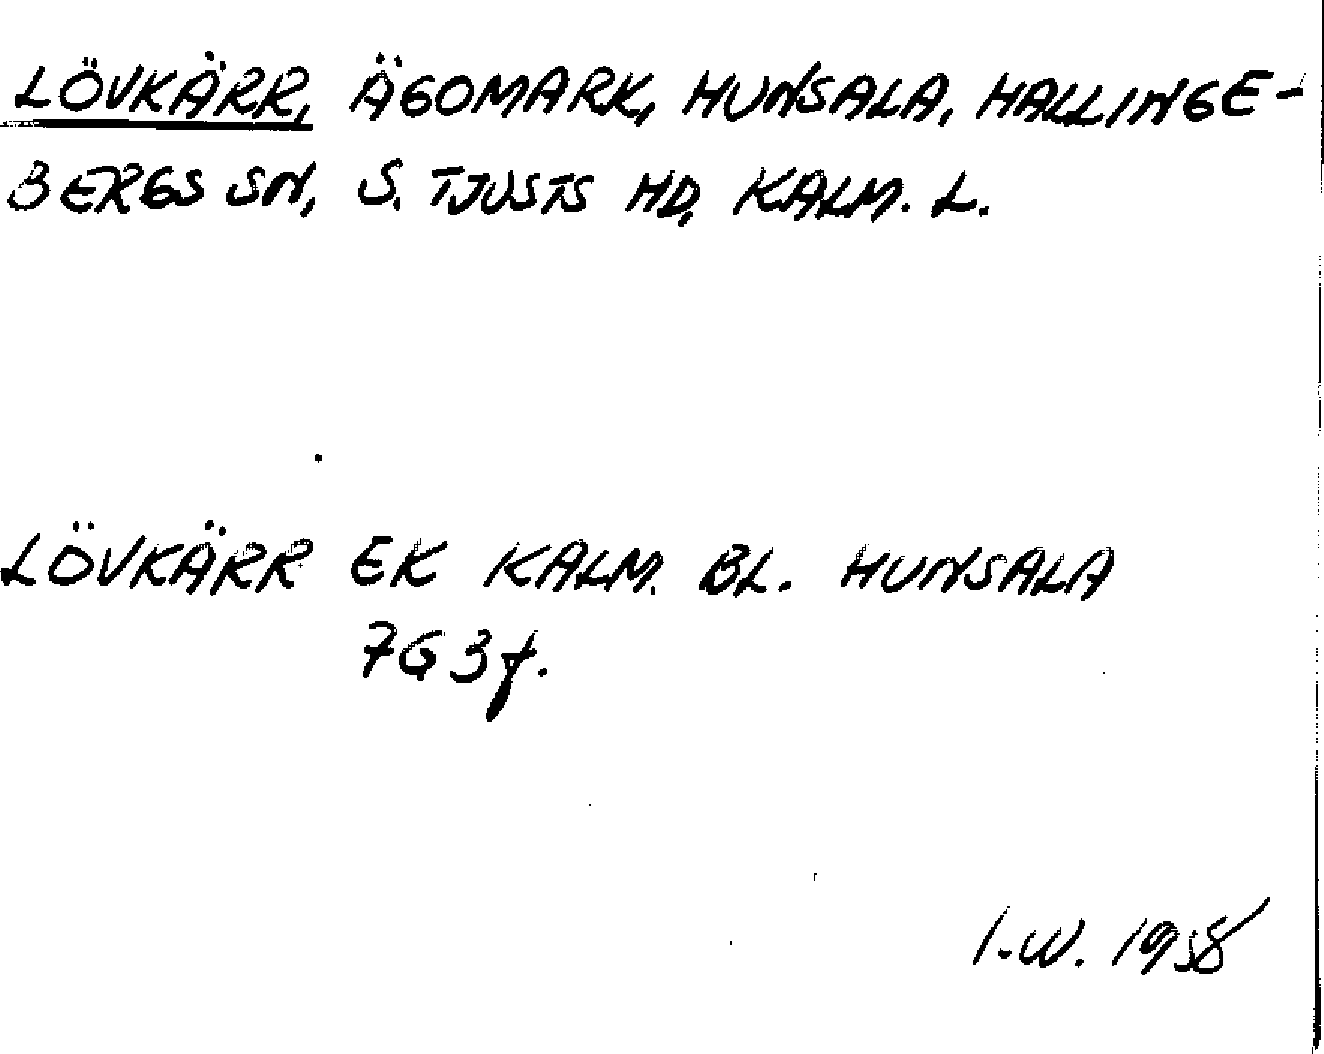 LÖVKÄRR, ÄGOMARK, HUNSALA, HALLINGE-
BERGS SN, S. TJUSTS HD, KALM. L.
LÖVKÄRR EK KALM. BL. HUNSALA
7G3f.
I.W. 1958